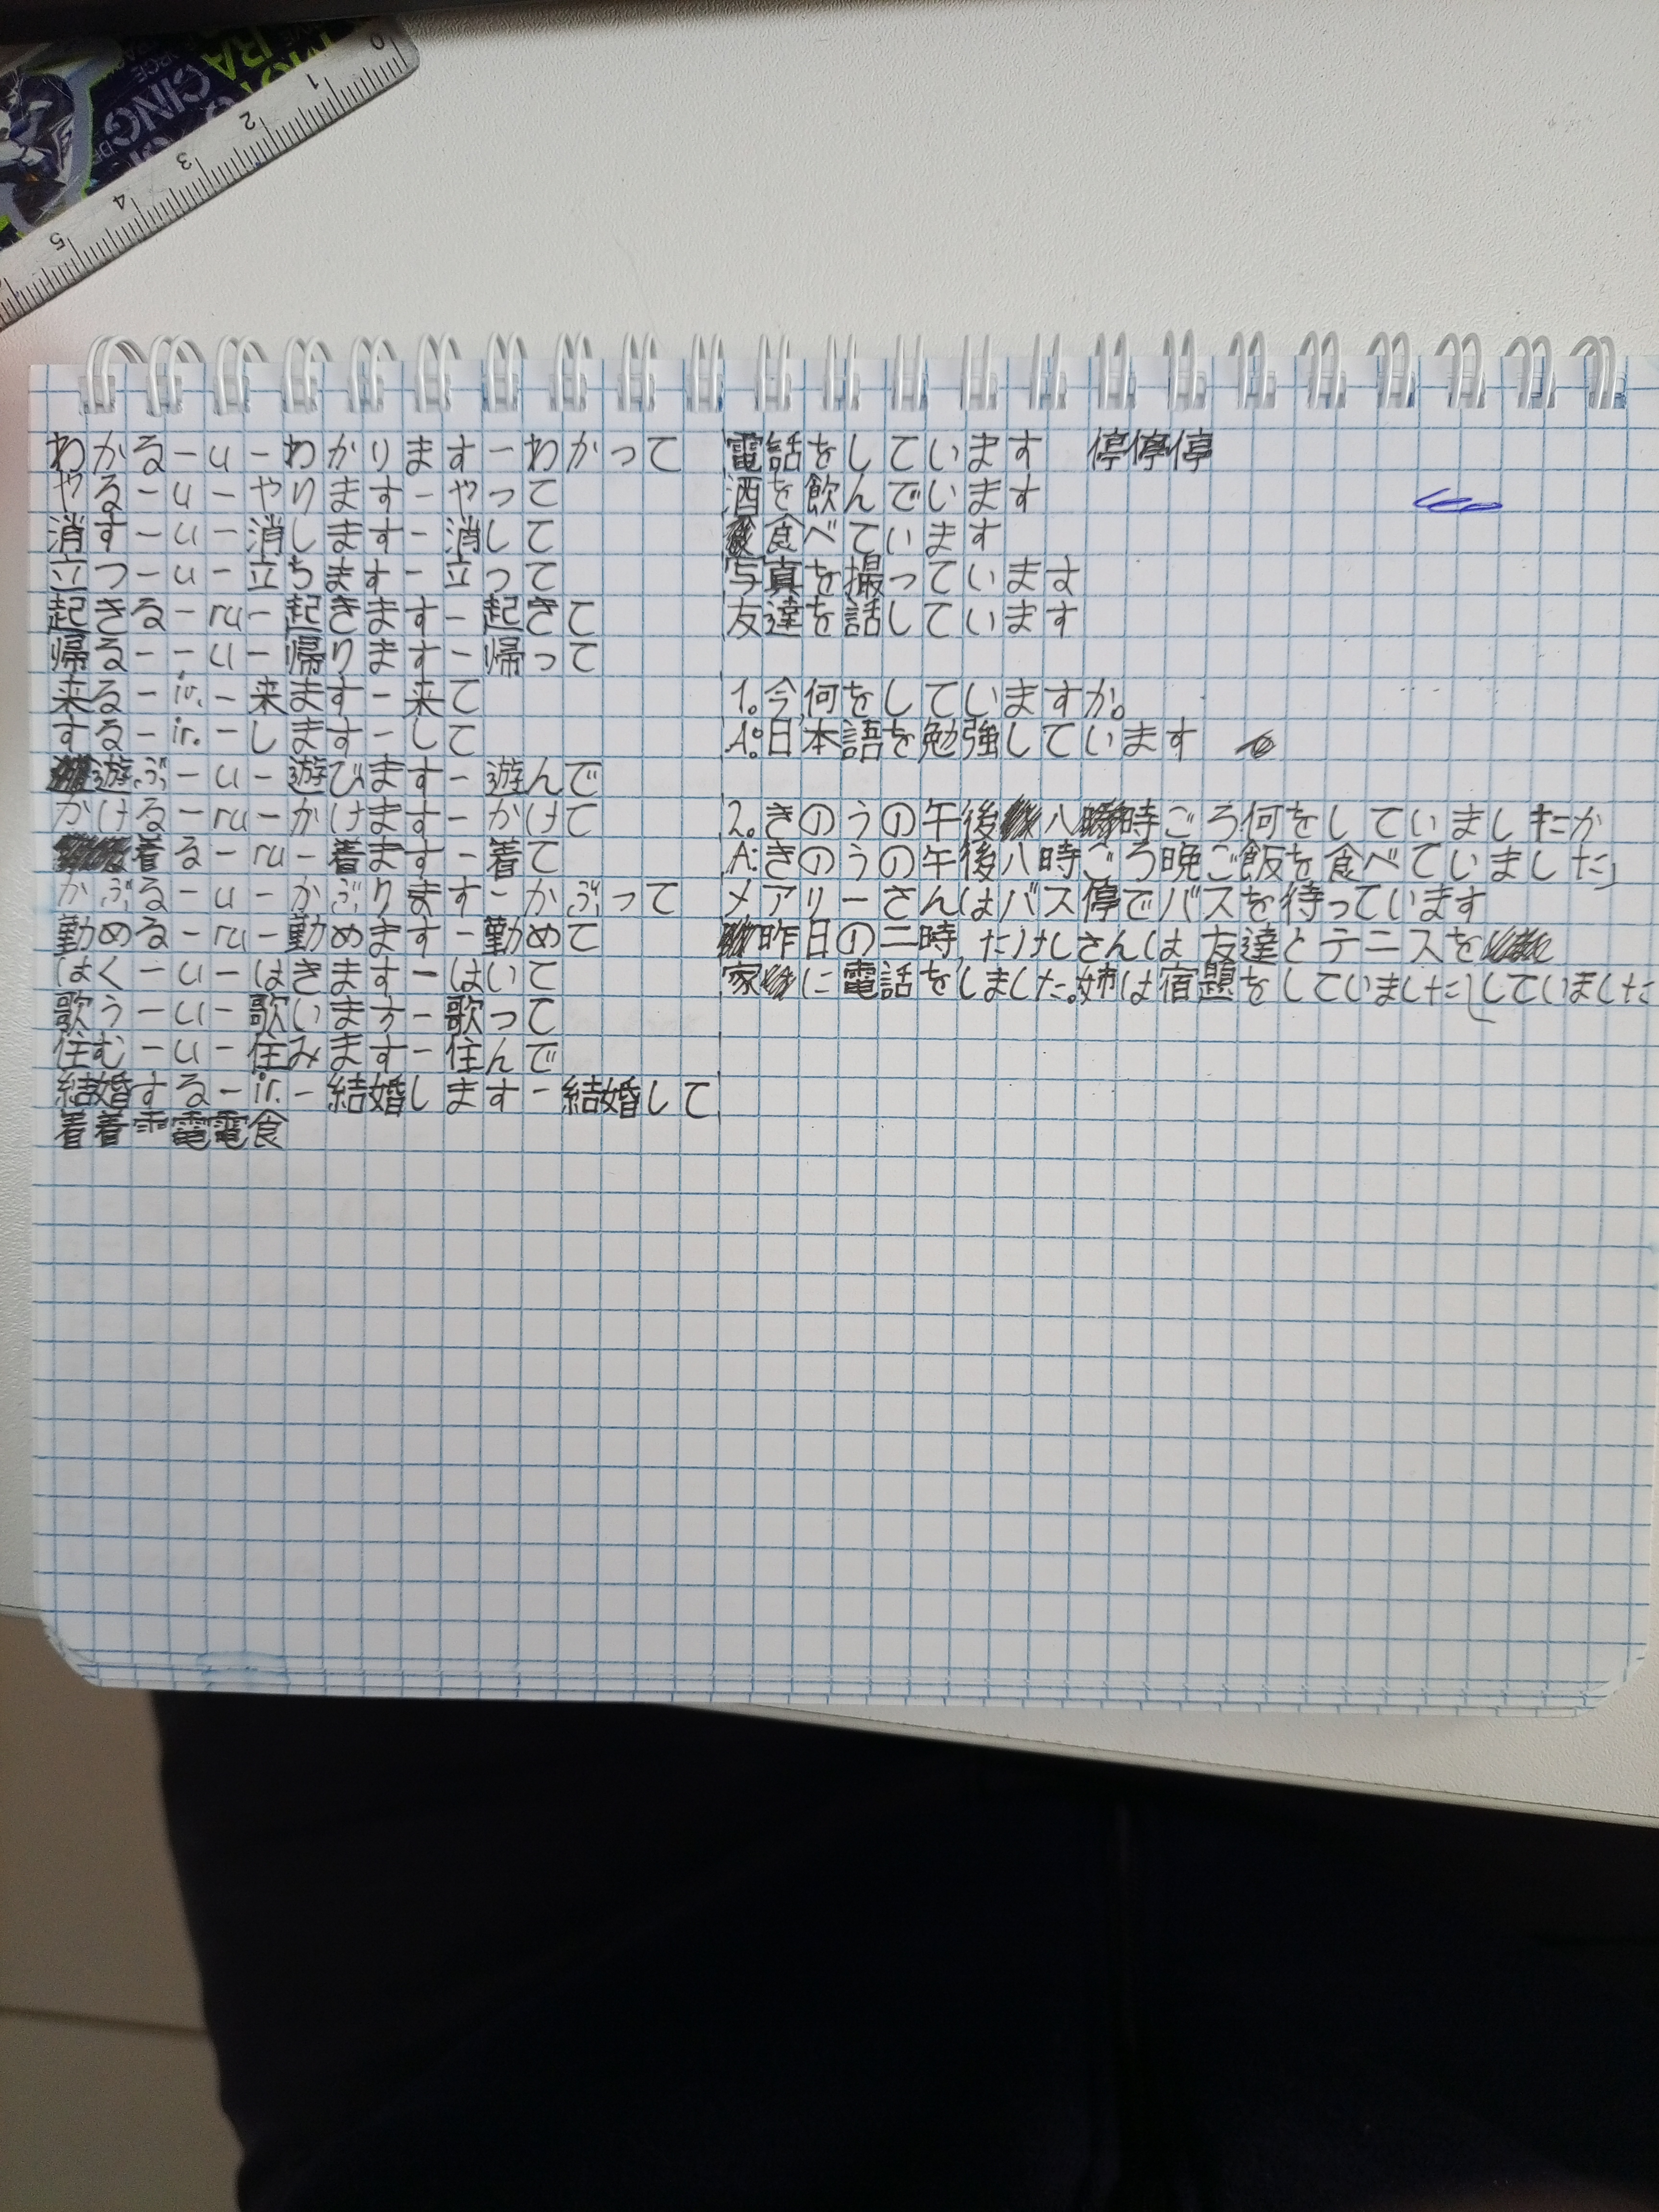 0 1 2 3 4 5
RACING
わかる-u-わかります-わかって
やる-u-やります-やって
消す-u-消します-消して
立つ-u-立ちます-立って
起きる-ru-起きます-起きて
帰る--u-帰ります-帰って
来る-ir.-来ます-来て
する-ir.-します-して
遊ぶ-u-遊びます-遊んで
かける-ru-かけます-かけて
着る-ru-着ます-着て
かぶる-u-かぶります-かぶって
勤める-ru-勤めます-勤めて
はく-u-はきます-はいて
歌う-u-歌います-歌って
住む-u-住みます-住んで
結婚する-ir.-結婚します-結婚して
着着電電食
電話をしています 停停停
酒を飲んでいます
食べています
写真を撮っています
友達を話しています
1.今何をしていますか。
A:日本語を勉強しています
2.きのうの午後八時ごろ何をしていましたか
A:きのうの午後八時ごろ晩ご飯を食べていました
メアリーさんはバス停でバスを待っています
昨日の二時,たけしさんは友達とテニスを
していました
家に電話をしました。姉は宿題をしていました